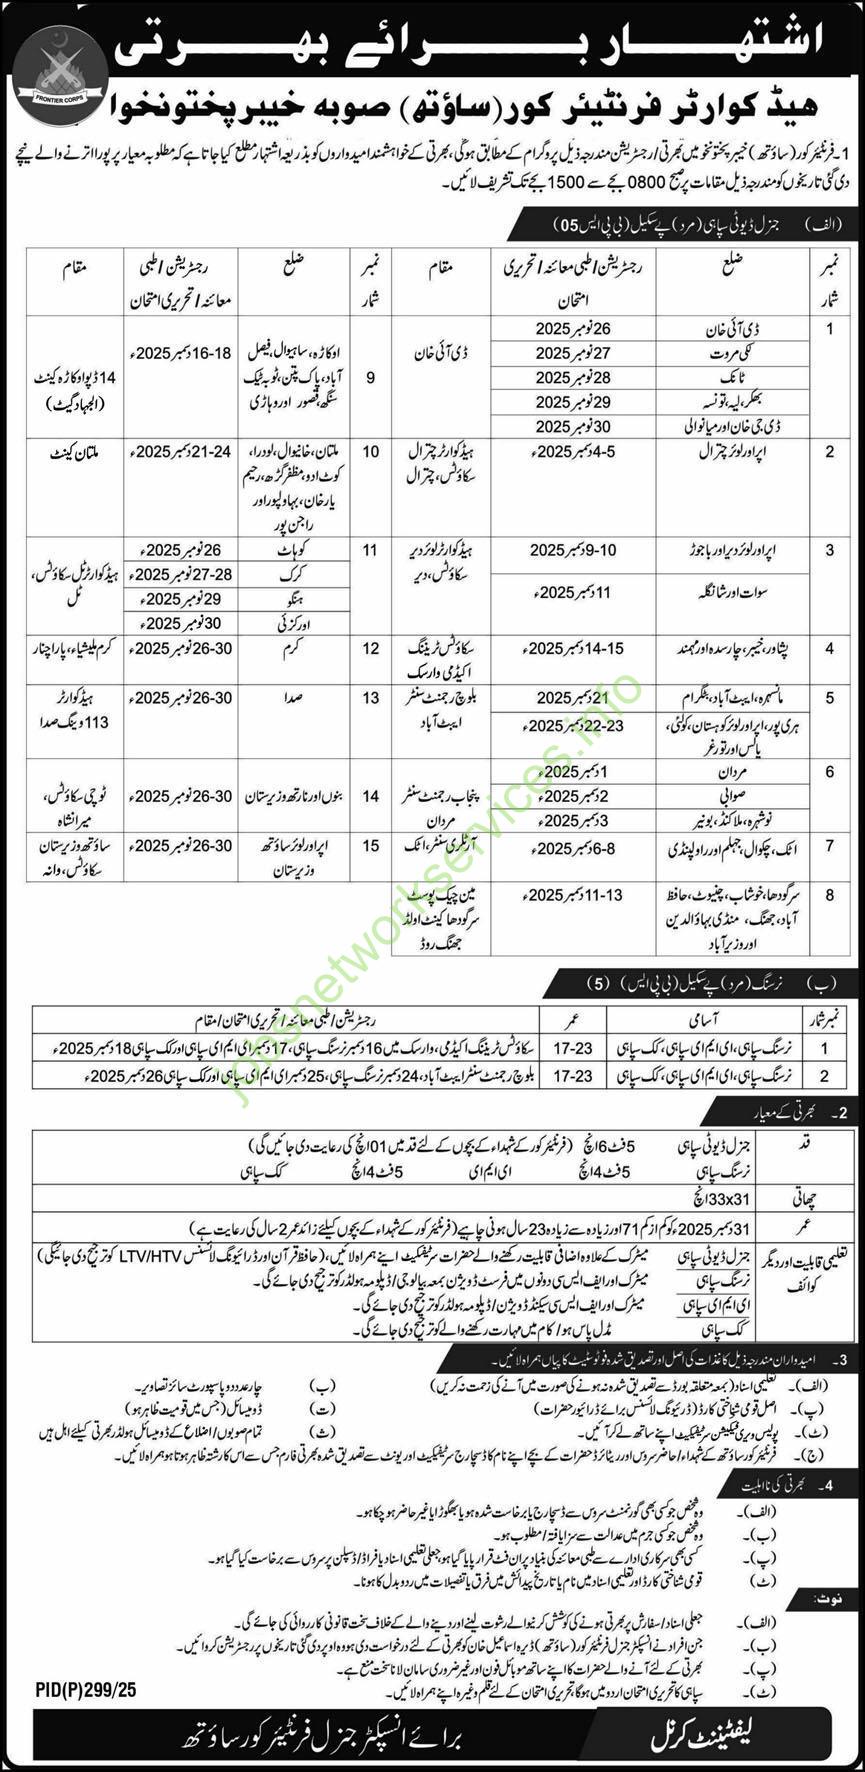 اشتہار برائے بھرتی
FRONTIER CORPS
ہیڈ کوارٹر فرنٹیئر کور (ساؤتھ) صوبہ خیبر پختونخوا
1۔ فرنٹیئر کور (ساؤتھ) خیبر پختونخوا میں بھرتی/رجسٹریشن مندرجہ ذیل پروگرام کے مطابق ہوگی، بھرتی کے خواہشمند امیدواروں کو بذریعہ اشتہار مطلع کیا جاتا ہے کہ مطلوبہ معیار پر پورا اترنے والے نیچے
دی گئی تاریخوں کو مندرجہ ذیل مقامات پر صبح 0800 بجے سے 1500 بجے تک تشریف لائیں۔
(الف) جنرل ڈیوٹی سپاہی (مرد) پے سکیل (بی پی ایس 05)
نمبر شمار ضلع رجسٹریشن/طبی معائنہ/تحریری امتحان مقام
1 ڈی آئی خان 26 نومبر 2025 ڈی آئی خان
لکی مروت 27 نومبر 2025
ٹانک 28 نومبر 2025
بھکر، لیہ، تونسہ 29 نومبر 2025
ڈی جی خان اور میانوالی 30 نومبر 2025
2 اپر اور لوئر چترال 4-5 دسمبر 2025ء ہیڈ کوارٹر چترال
سکاؤٹس، چترال
3 اپر اور لوئر دیر اور باجوڑ 9-10 دسمبر 2025 ہیڈ کوارٹر لوئر دیر
سکاؤٹس، دیر
سوات اور شانگلہ 11 دسمبر 2025ء
4 پشاور، خیبر، چارسدہ اور مہمند 14-15 دسمبر 2025ء سکاؤٹس ٹریننگ
اکیڈمی وارسک
5 مانسہرہ، ایبٹ آباد، بٹگرام 21 دسمبر 2025 بلوچ رجمنٹ سنٹر
ایبٹ آباد
ہری پور، اپر اور لوئر کوہستان، کولئی، 22-23 دسمبر 2025ء
پالس اور تورغر
6 مردان 1 دسمبر 2025ء پنجاب رجمنٹ سنٹر
مردان
صوابی 2 دسمبر 2025ء
نوشہرہ، ملاکنڈ، بونیر 3 دسمبر 2025ء
7 اٹک، چکوال، جہلم اور راولپنڈی 6-8 دسمبر 2025ء آرٹلری سنٹر، اٹک
8 سرگودھا، خوشاب، چنیوٹ، حافظ 11-13 دسمبر 2025ء مین چیک پوسٹ
آباد، جھنگ، منڈی بہاؤالدین سرگودھا کینٹ اولڈ
اور وزیر آباد جھنگ روڈ
نمبر شمار ضلع رجسٹریشن/طبی معائنہ/تحریری امتحان مقام
9 اوکاڑہ، ساہیوال، فیصل 16-18 دسمبر 2025ء 14 ڈپو اوکاڑہ کینٹ
آباد، پاک پتن، ٹوبہ ٹیک (الجہاد گیٹ)
سنگھ، قصور اور وہاڑی
10 ملتان، خانیوال، لودراں، 21-24 دسمبر 2025ء ملتان کینٹ
کوٹ ادو، مظفر گڑھ، رحیم
یار خان، بہاولپور اور
راجن پور
11 کوہاٹ 26 نومبر 2025ء ہیڈ کوارٹر ٹل سکاؤٹس،
ٹل
کرک 27-28 نومبر 2025ء
ہنگو 29 نومبر 2025ء
اورکزئی 30 نومبر 2025ء
12 کرم 26-30 نومبر 2025ء کرم ملیشیاء، پارا چنار
13 صدا 26-30 نومبر 2025ء ہیڈ کوارٹر
113 ونگ صدا
14 بنوں اور نارتھ وزیرستان 26-30 نومبر 2025ء ٹوچی سکاؤٹس،
میرانشاہ
15 اپر اور لوئر ساؤتھ 26-30 نومبر 2025ء ساؤتھ وزیرستان
وزیرستان سکاؤٹس، وانہ
(ب) نرسنگ (مرد) پے سکیل (بی پی ایس) (5)
نمبر شمار آسامی عمر رجسٹریشن/طبی معائنہ/تحریری امتحان/مقام
1 نرسنگ سپاہی، ای ایم ای سپاہی، کک سپاہی 17-23 سکاؤٹس ٹریننگ اکیڈمی، وارسک میں 16 دسمبر نرسنگ سپاہی، 17 دسمبر ای ایم ای سپاہی اور کک سپاہی 18 دسمبر 2025ء
2 نرسنگ سپاہی، ای ایم ای سپاہی، کک سپاہی 17-23 بلوچ رجمنٹ سنٹر ایبٹ آباد، 24 دسمبر نرسنگ سپاہی، 25 دسمبر ای ایم ای سپاہی اور کک سپاہی 26 دسمبر 2025ء
2۔ بھرتی کے معیار
قد جنرل ڈیوٹی سپاہی 5 فٹ 6 انچ (فرنٹیئر کور کے شہداء کے بچوں کے لئے قد میں 01 انچ کی رعایت دی جائیں گی)
نرسنگ سپاہی 5 فٹ 4 انچ ای ایم ای 5 فٹ 4 انچ کک سپاہی
چھاتی 33x31 انچ
عمر 31 دسمبر 2025ء کو کم از کم 17 اور زیادہ سے زیادہ 23 سال ہونی چاہیے (فرنٹیئر کور کے شہداء کے بچوں کیلئے زائد عمر 2 سال کی رعایت ہے)
تعلیمی قابلیت اور دیگر کوائف جنرل ڈیوٹی سپاہی میٹرک کے علاوہ اضافی قابلیت رکھنے والے حضرات سرٹیفکیٹ اپنے ہمراہ لائیں، (حافظ قرآن اور ڈرائیونگ لائسنس LTV/HTV کو ترجیح دی جائیگی)
نرسنگ سپاہی میٹرک اور ایف ایس سی دونوں میں فرسٹ ڈویژن بمعہ بیالوجی/ڈپلومہ ہولڈر کو ترجیح دی جائے گی۔
ای ایم ای سپاہی میٹرک اور ایف ایس سی سیکنڈ ڈویژن/ڈپلومہ ہولڈر کو ترجیح دی جائے گی۔
کک سپاہی مڈل پاس ہو/کام میں مہارت رکھنے والے کو ترجیح دی جائے گی۔
3۔ امیدواران مندرجہ ذیل کاغذات کی اصل اور تصدیق شدہ فوٹوسٹیٹ کاپیاں ہمراہ لائیں۔
(الف)۔ تعلیمی اسناد (بمعہ متعلقہ بورڈ سے تصدیق شدہ نہ ہونے کی صورت میں آنے کی زحمت نہ کریں) (ب) چار عدد پاسپورٹ سائز تصاویر۔
(پ)۔ اصل قومی شناختی کارڈ (ڈرائیونگ لائسنس برائے ڈرائیور حضرات) (ت) ڈومیسائل (جس میں قومیت ظاہر ہو)
(ٹ)۔ پولیس ویری فیکیشن سرٹیفکیٹ اپنے ساتھ لے کر آئیں۔ (ث) تمام صوبوں/اضلاع کے ڈومیسائل ہولڈر بھرتی کیلئے اہل ہیں
(ج)۔ فرنٹیئر کور ساؤتھ کے شہداء/حاضر سروس اور ریٹائرڈ حضرات کے بچے اپنے نام کا ڈسچارج سرٹیفکیٹ اور یونٹ سے تصدیق شدہ بھرتی فارم جس سے اس کا رشتہ ظاہر ہوتا ہو ہمراہ لائیں۔
4۔ بھرتی کی نااہلیت
(الف)۔ وہ شخص جو کسی بھی گورنمنٹ سروس سے ڈسچارج یا برخاست شدہ ہو یا بھگوڑا یا غیر حاضر ہو چکا ہو۔
(ب)۔ وہ شخص جو کسی جرم میں عدالت سے سزا یافتہ/مطلوب ہو۔
(پ)۔ کسی بھی سرکاری ادارے سے طبی معائنہ کی بنیاد پر ان فٹ قرار پایا گیا ہو، جعلی تعلیمی اسناد یا فراڈ/ڈسپلن پر سروس سے برخاست کیا گیا ہو۔
(ت)۔ قومی شناختی کارڈ اور تعلیمی اسناد میں نام یا تاریخ پیدائش میں فرق یا تفصیلات میں ردوبدل کا ہونا۔
نوٹ:
(الف)۔ جعلی اسناد/سفارش پر بھرتی ہونے کی کوشش کرنیوالے رشوت لینے اور دینے والے کے خلاف سخت قانونی کارروائی کی جائے گی۔
(ب)۔ جن افراد نے انسپکٹر جنرل فرنٹیئر کور (ساؤتھ) ڈیرہ اسماعیل خان کو بھرتی کے لئے درخواست دی ہو وہ اوپر دی گئی تاریخوں پر رجسٹریشن کروائیں۔
(پ)۔ بھرتی کے لئے آنے والے حضرات کا اپنے ساتھ موبائل فون اور غیر ضروری سامان لانا سخت منع ہے۔
(ت)۔ سپاہی کا تحریری امتحان اردو میں ہوگا، تحریری امتحان کے لئے قلم وغیرہ اپنے ہمراہ لائیں۔
PID(P)299/25
لیفٹیننٹ کرنل
برائے انسپکٹر جنرل فرنٹیئر کور ساؤتھ
jobsnetworkservices.info